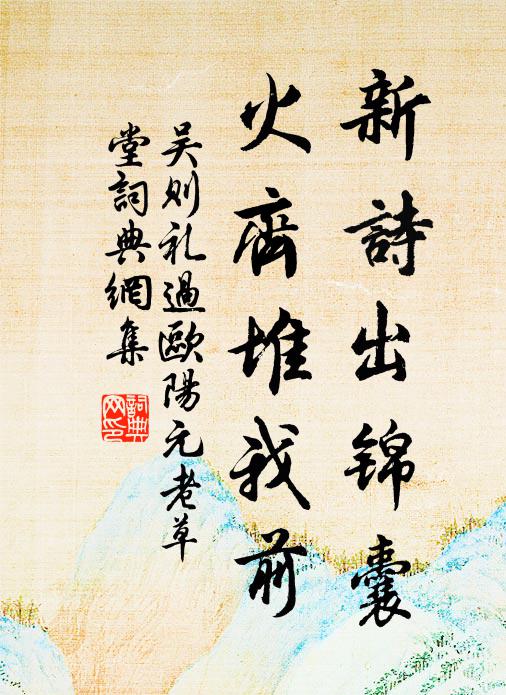 新詩出錦囊
火齊堆我前
吴则礼過歐陽元老草
堂詞典網集
詞典
网印